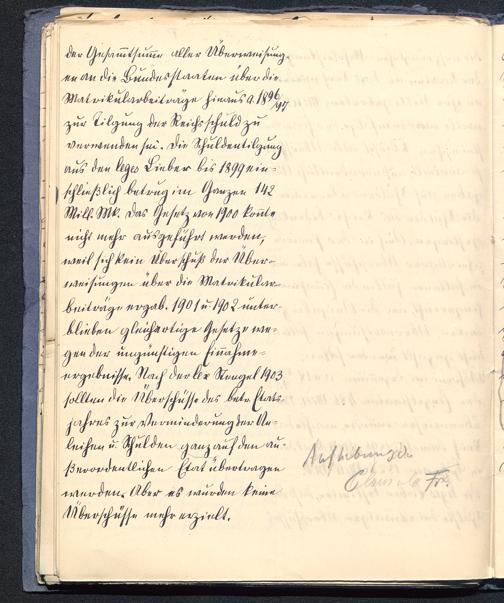 der Gesamtsumme aller Überweisung-
en an die Bundesstaaten über die
Matrikularbeiträge hinaus a. 1896/97
zur Tilgung der Reichsschuld zu
verwenden sei. Die Schuldentilgung
aus den leges Lieber bis 1899 ein-
schließlich betrug im Ganzen 142
Mill. Mk. Das Gesetz von 1900 konnte
nicht mehr ausgeführt werden,
weil sich kein Überschuß der Über-
weisungen über die Matrikular-
beiträge ergab. 1901 u. 1902 unter-
blieben gleichartige Gesetze we-
gen der ungünstigen Einnahme-
ergebnisse. Nach der lex Stengel 1903
sollten die Überschüsse des betr. Etats-
jahres zur Verminderung der An-
leihen u. Schulden ganz auf den au-
ßerordentlichen Etat übertragen
werden. Aber es wurden keine
Überschüsse mehr erzielt.
Aufhebung der